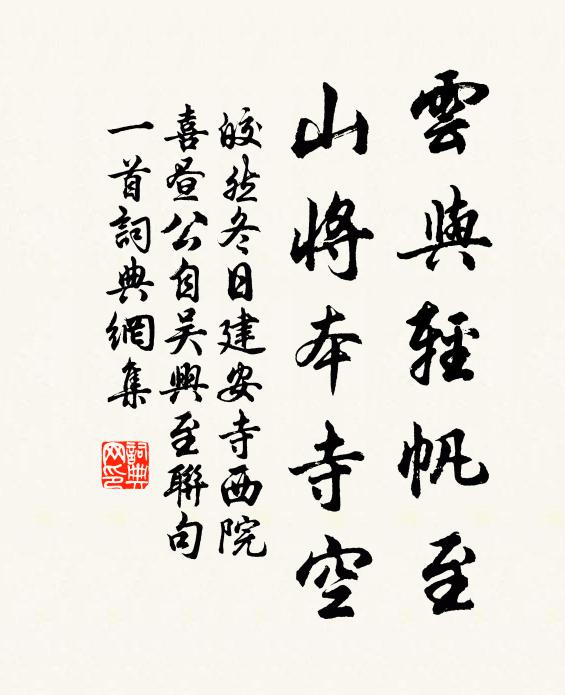 雲與輕帆至
山將本寺空
皎然冬日建安寺西院
喜昼公自吴興至聯句
一首詞典網集
詞典网印